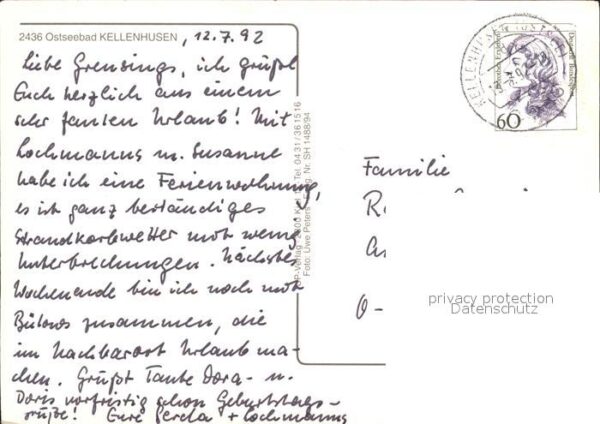 2436 Ostseebad KELLENHUSEN, 12.7.92
Liebe Grensings, ich grüße
Euch herzlich aus einem
sehr faulen Urlaub! Mit
Lochmanns u. Susanne
habe ich eine Ferienwohnung,
es ist ganz beständiges
Strandkorbwetter mit wenig
Unterbrechungen. Nächstes
Wochenende bin ich noch mit
Bülows zusammen, die
im Nachbarort Urlaub ma-
chen. Grüßt Tante Dora u.
Doris vorfristig schon Geburtstags-
grüße! Eure + Lochmanns
Foto: Uwe Peters Nr. SH 1488/94
Tel. 04 31/36 15 16
KELLENHUSEN (OSTSEE)
Deutsche Bundespost
60
Familie
R
O-
privacy protection
Datenschutz